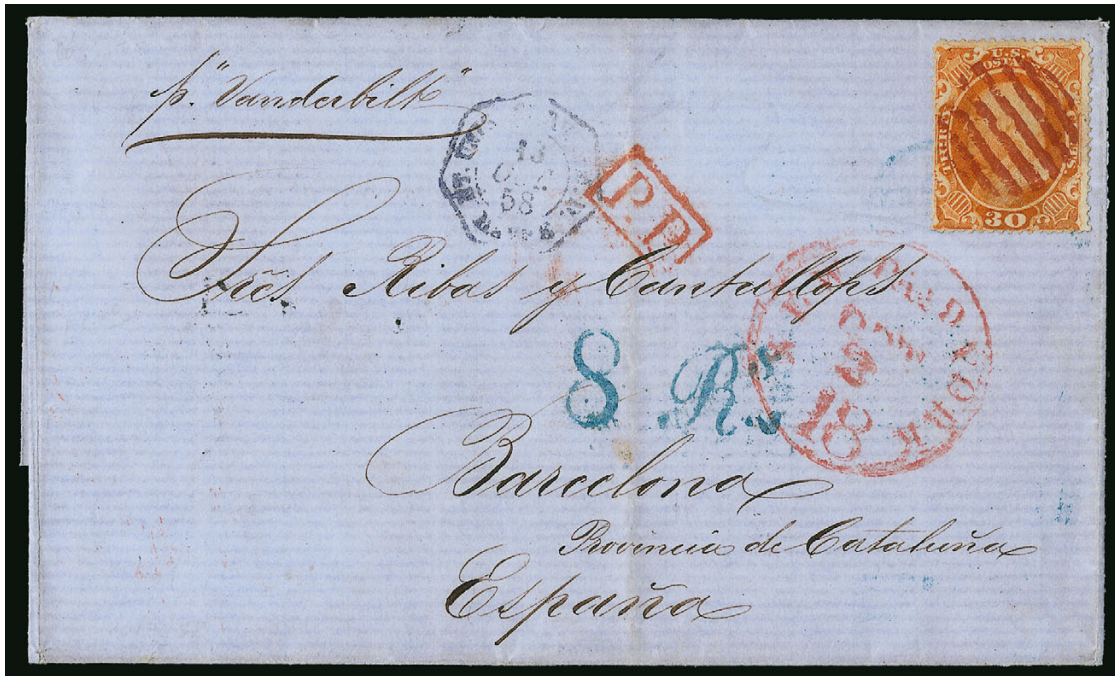 p. "Vanderbilt"
U.S.
POSTA
30
13
OCT.
58
P.P.
Srẽs Ribas y Cantallops
NEW PAID YORK
OCT
2
18
8 Rs.
Barcelona
Provincia de Cataluña
España